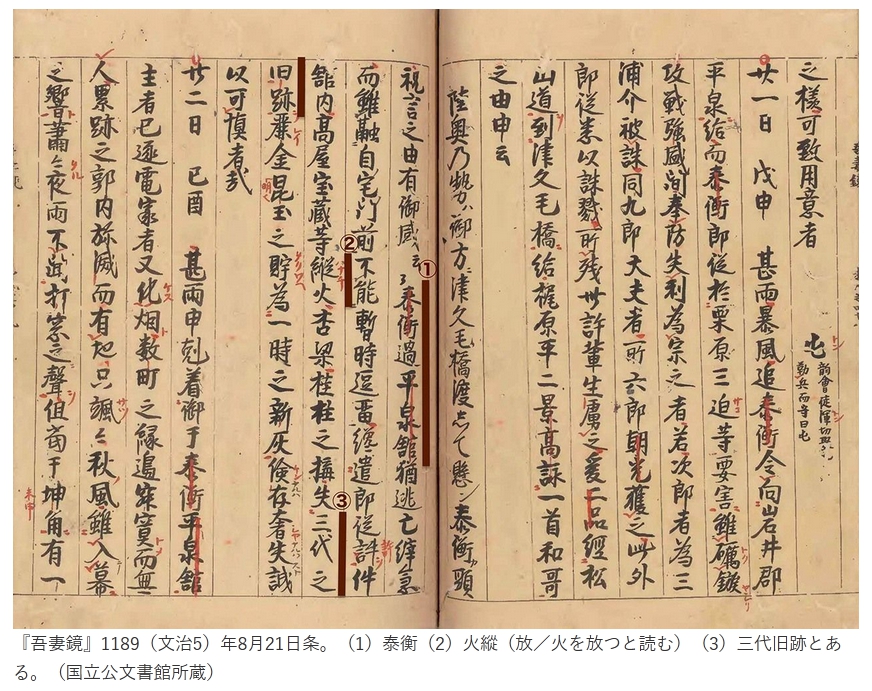 之様可致用意者
屯
勒兵而守曰屯
廿一日 戊申 甚雨暴風追泰衡令向岩井郡
平泉給而泰衡郎従於栗原三迫等要害雖礪鏃
攻戦強盛間奉防失利為宗之者若次郎者為三
浦介被誅同九郎大夫者所六郎朝光獲之此外
郎従悉以誅戮所残卅許輩生虜之爰二品経松
山道到津久毛橋給梶原平二景高詠一首和哥
之由申云
陸奥乃勢ハ御方ニ津久毛橋渡して懸ン泰衡頸
祝言之由有御感云々泰衡過平泉舘猶逃亡縡急
而雖融自宅門前不能暫時逗留纔遣郎従許件
舘内高屋宝蔵等縦火杏梁桂柱之搆失三代之
旧跡麗金昆玉之貯為一時之新灰倹存奢失誠
以可慎者哉
廿二日 己酉 甚雨申剋着御于泰衡平泉舘
主者已逐電家者又化烟数町之縁邉寂寞而無
人累跡之郭内弥滅而有地只颯々秋風雖入幕
之響蕭々夜雨不聞打窓之聲但當于坤角有一
①
②
③
『吾妻鏡』1189（文治5）年8月21日条。（1）泰衡（2）火縱（放／火を放つと読む）（3）三代旧跡とあ
る。（国立公文書館所蔵）